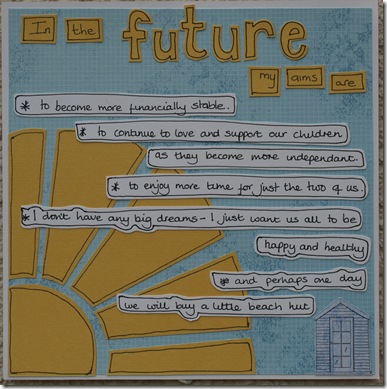 In the future
my aims are
* to become more financially stable.
* to continue to love and support our children
as they become more independant.
* to enjoy more time for just the two of us.
* I don't have any big dreams - I just want us all to be
happy and healthy
* and perhaps one day
we will buy a little beach hut